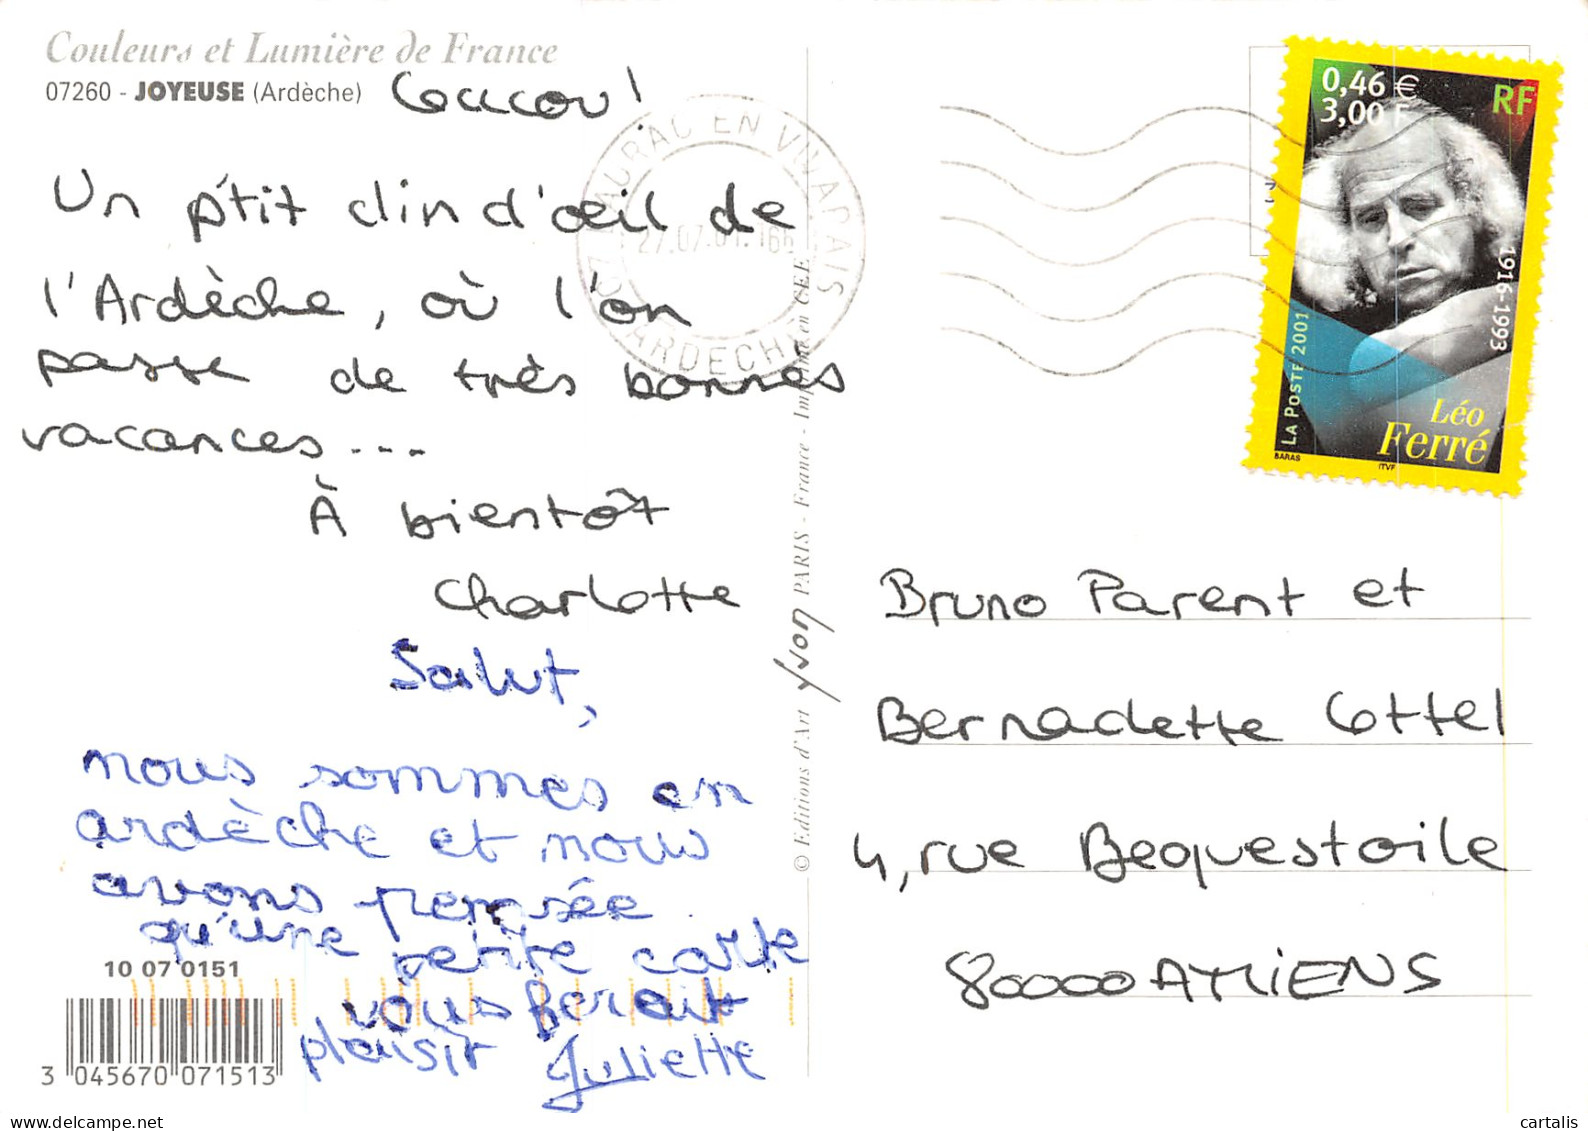 Couleurs et Lumière de France
07260 - JOYEUSE (Ardèche)
Coucou!
Un p'tit clin d'œil de
l'Ardèche, où l'on
passe de très bonnes
vacances...
À bientôt
Charlotte
Salut,
nous sommes en
ardèche et nous
avons pensée
qu'une petite carte
vous ferait
plaisir Juliette
10 07 0151
3 045670 071513
© Editions d'Art Yvon PARIS - France - Imprimé en CEE
LAURAC EN VIVARAIS
27.07.01. 16H
07 ARDECHE
0,46 €
3,00 F
RF
1916-1993
LA POSTE 2001
Léo
Ferré
BARAS
ITVF
Bruno Parent et
Bernadette Cottel
4, rue Bequestoile
80000 AMIENS
cartalis